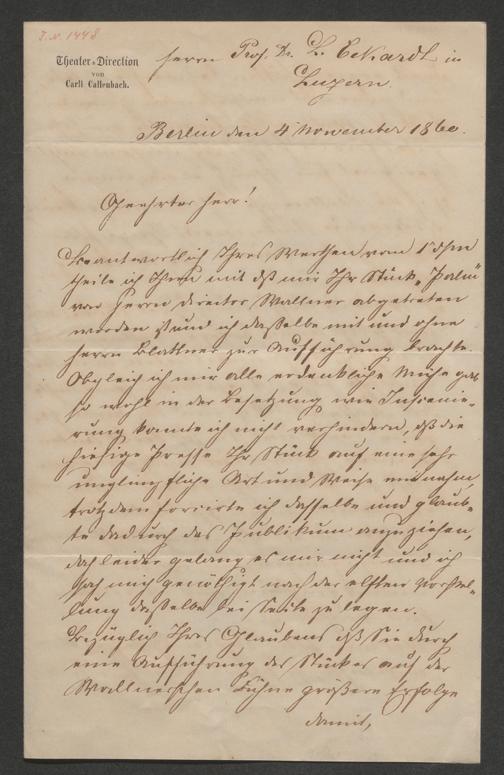 I. N. 1448
Theater-Direction
von
Carli Callenbach.
Herrn Prof. Dr. L. Eckardt in
Luzern.
Berlin den 4 November 1860.
Geehrter Herr!
Beantwortlich Ihres Werthen vom 1
theile ich Ihnen mit daß mir Ihr Stück „Palm"
von Herrn Director Wallner abgetreten
worden ist und ich dasselbe mit und ohne
Herrn Blattner zur Aufführung brachte.
Obgleich ich mir alle erdenkliche Mühe gab
so wohl in der Besetzung wie Inscenie-
rung konnte ich nicht verhindern, daß die
hiesige Presse Ihr Stück auf eine sehr
unglimpfliche Art und Weise
trotzdem forcirte ich dasselbe und glaub-
te dadurch das Publikum anzuziehen,
doch leider gelang es mir nicht und ich
sah mich genöthigt nach der elften Vorstel-
lung dasselbe bei Seite zu legen.
Bezüglich Ihres Glaubens daß Sie durch
eine Aufführung des Stückes auf der
Wallnerschen Bühne größere Erfolge
damit,